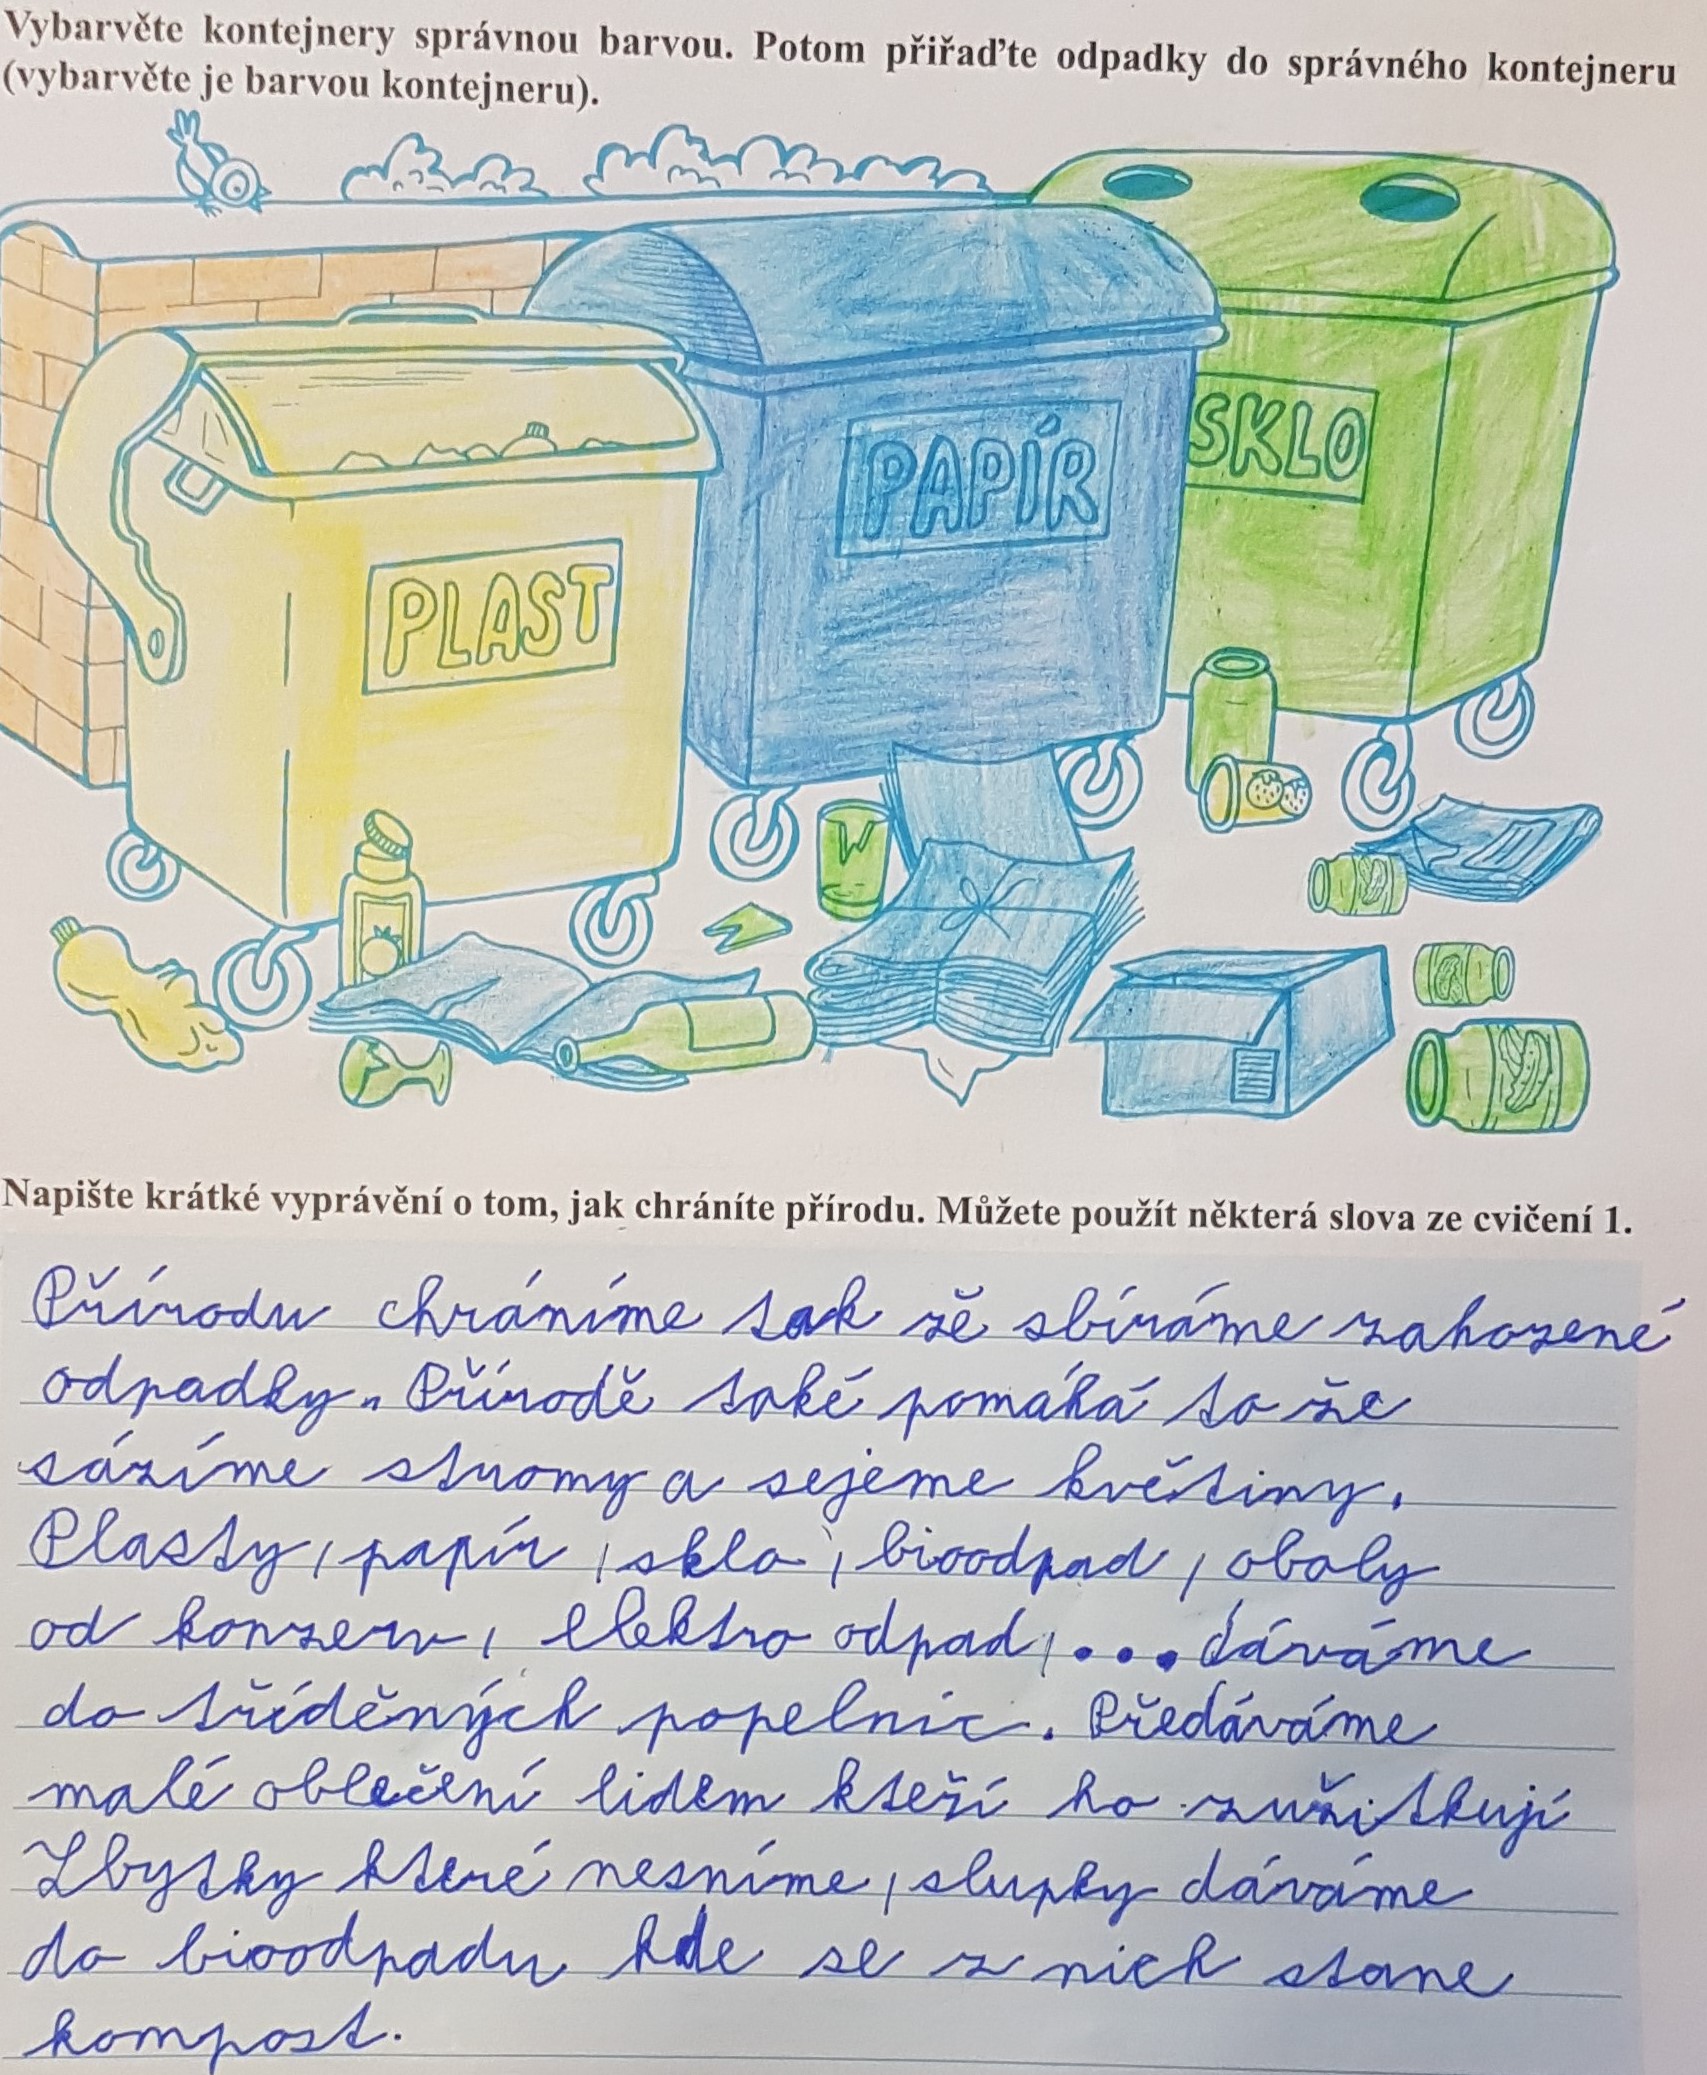 Vybarvěte kontejnery správnou barvou. Potom přiřaďte odpadky do správného kontejneru
(vybarvěte je barvou kontejneru).
SKLO
PAPÍR
PLAST
Napište krátké vyprávění o tom, jak chráníte přírodu. Můžete použít některá slova ze cvičení 1.
Přírodu chráníme tak zě sbíráme zahozené
odpadky. Přírodě také pomáhá to že
sázíme stromy a sejeme květiny.
Plasty, papír, sklo, bioodpad, obaly
od konzerv, elektro odpad, ... dáváme
do tříděných popelnic. Předáváme
malé oblečení lidem kteří ho zužitkují
Zbytky které nesníme, slupky dáváme
do bioodpadu kde se z nich stane
kompost.